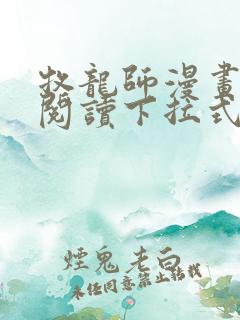 牧龍師漫畫
閱讀下拉式
煙鬼老白
未任同意禁止轉載